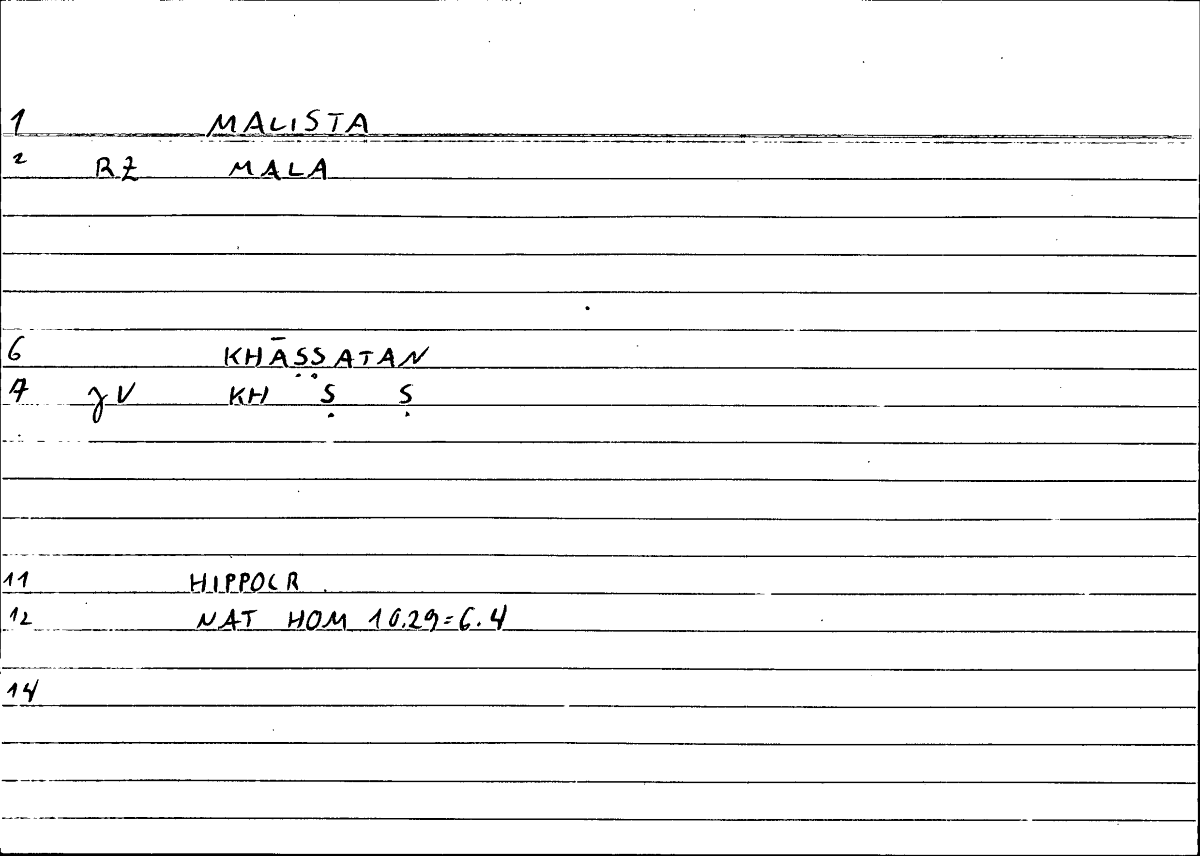 1 MALISTA
2 RZ MALA
6 KHĀṢṢATAN
7 γV KH Ṣ Ṣ
11 HIPPOCR
12 NAT HOM 10.29=6.4
14